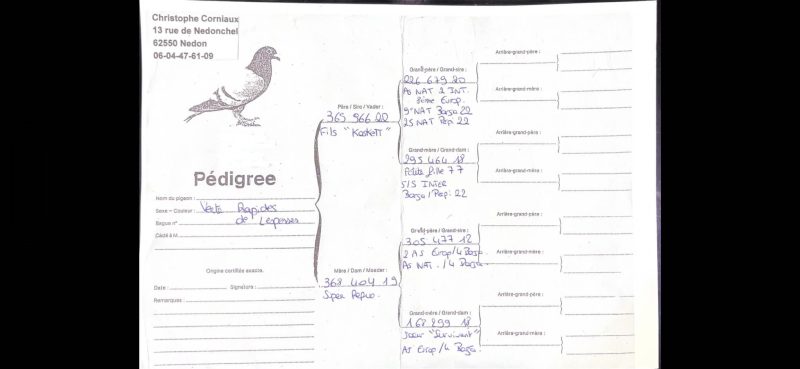 Christophe Corniaux
13 rue de Nedonchel
62550 Nedon
06-04-47-61-09
Pédigree
Nom du pigeon :
Sexe - Couleur : Vente Rapides
de Lespesses
Bague n°
Cédé à M.
Origine certifiée exacte.
Date : Signature :
Remarques :
Père / Sire / Vader :
365 966 22
Fils "Kaskett"
Mère / Dam / Moeder :
368 404 19
Grand-père / Grand-sire :
226 679 20
As NAT 2 INT.
3ième Europ.
9e NAT Barça 22
25 NAT Perp. 22
Grand-mère / Grand-dam :
295 464 18
Petite fille 77
S/S INTER
Barça / Perp. 22
Grand-père / Grand-sire :
305 477 12
2 AS Europ/4 Barça
As NAT. /4 Barça.
Grand-mère / Grand-dam :
168 299 18
Soeur "Survivant"
As Europ/4 Barça.
Arrière-grand-père :
Arrière-grand-mère :
Arrière-grand-père :
Arrière-grand-mère :
Arrière-grand-père :
Arrière-grand-mère :
Arrière-grand-père :
Arrière-grand-mère :